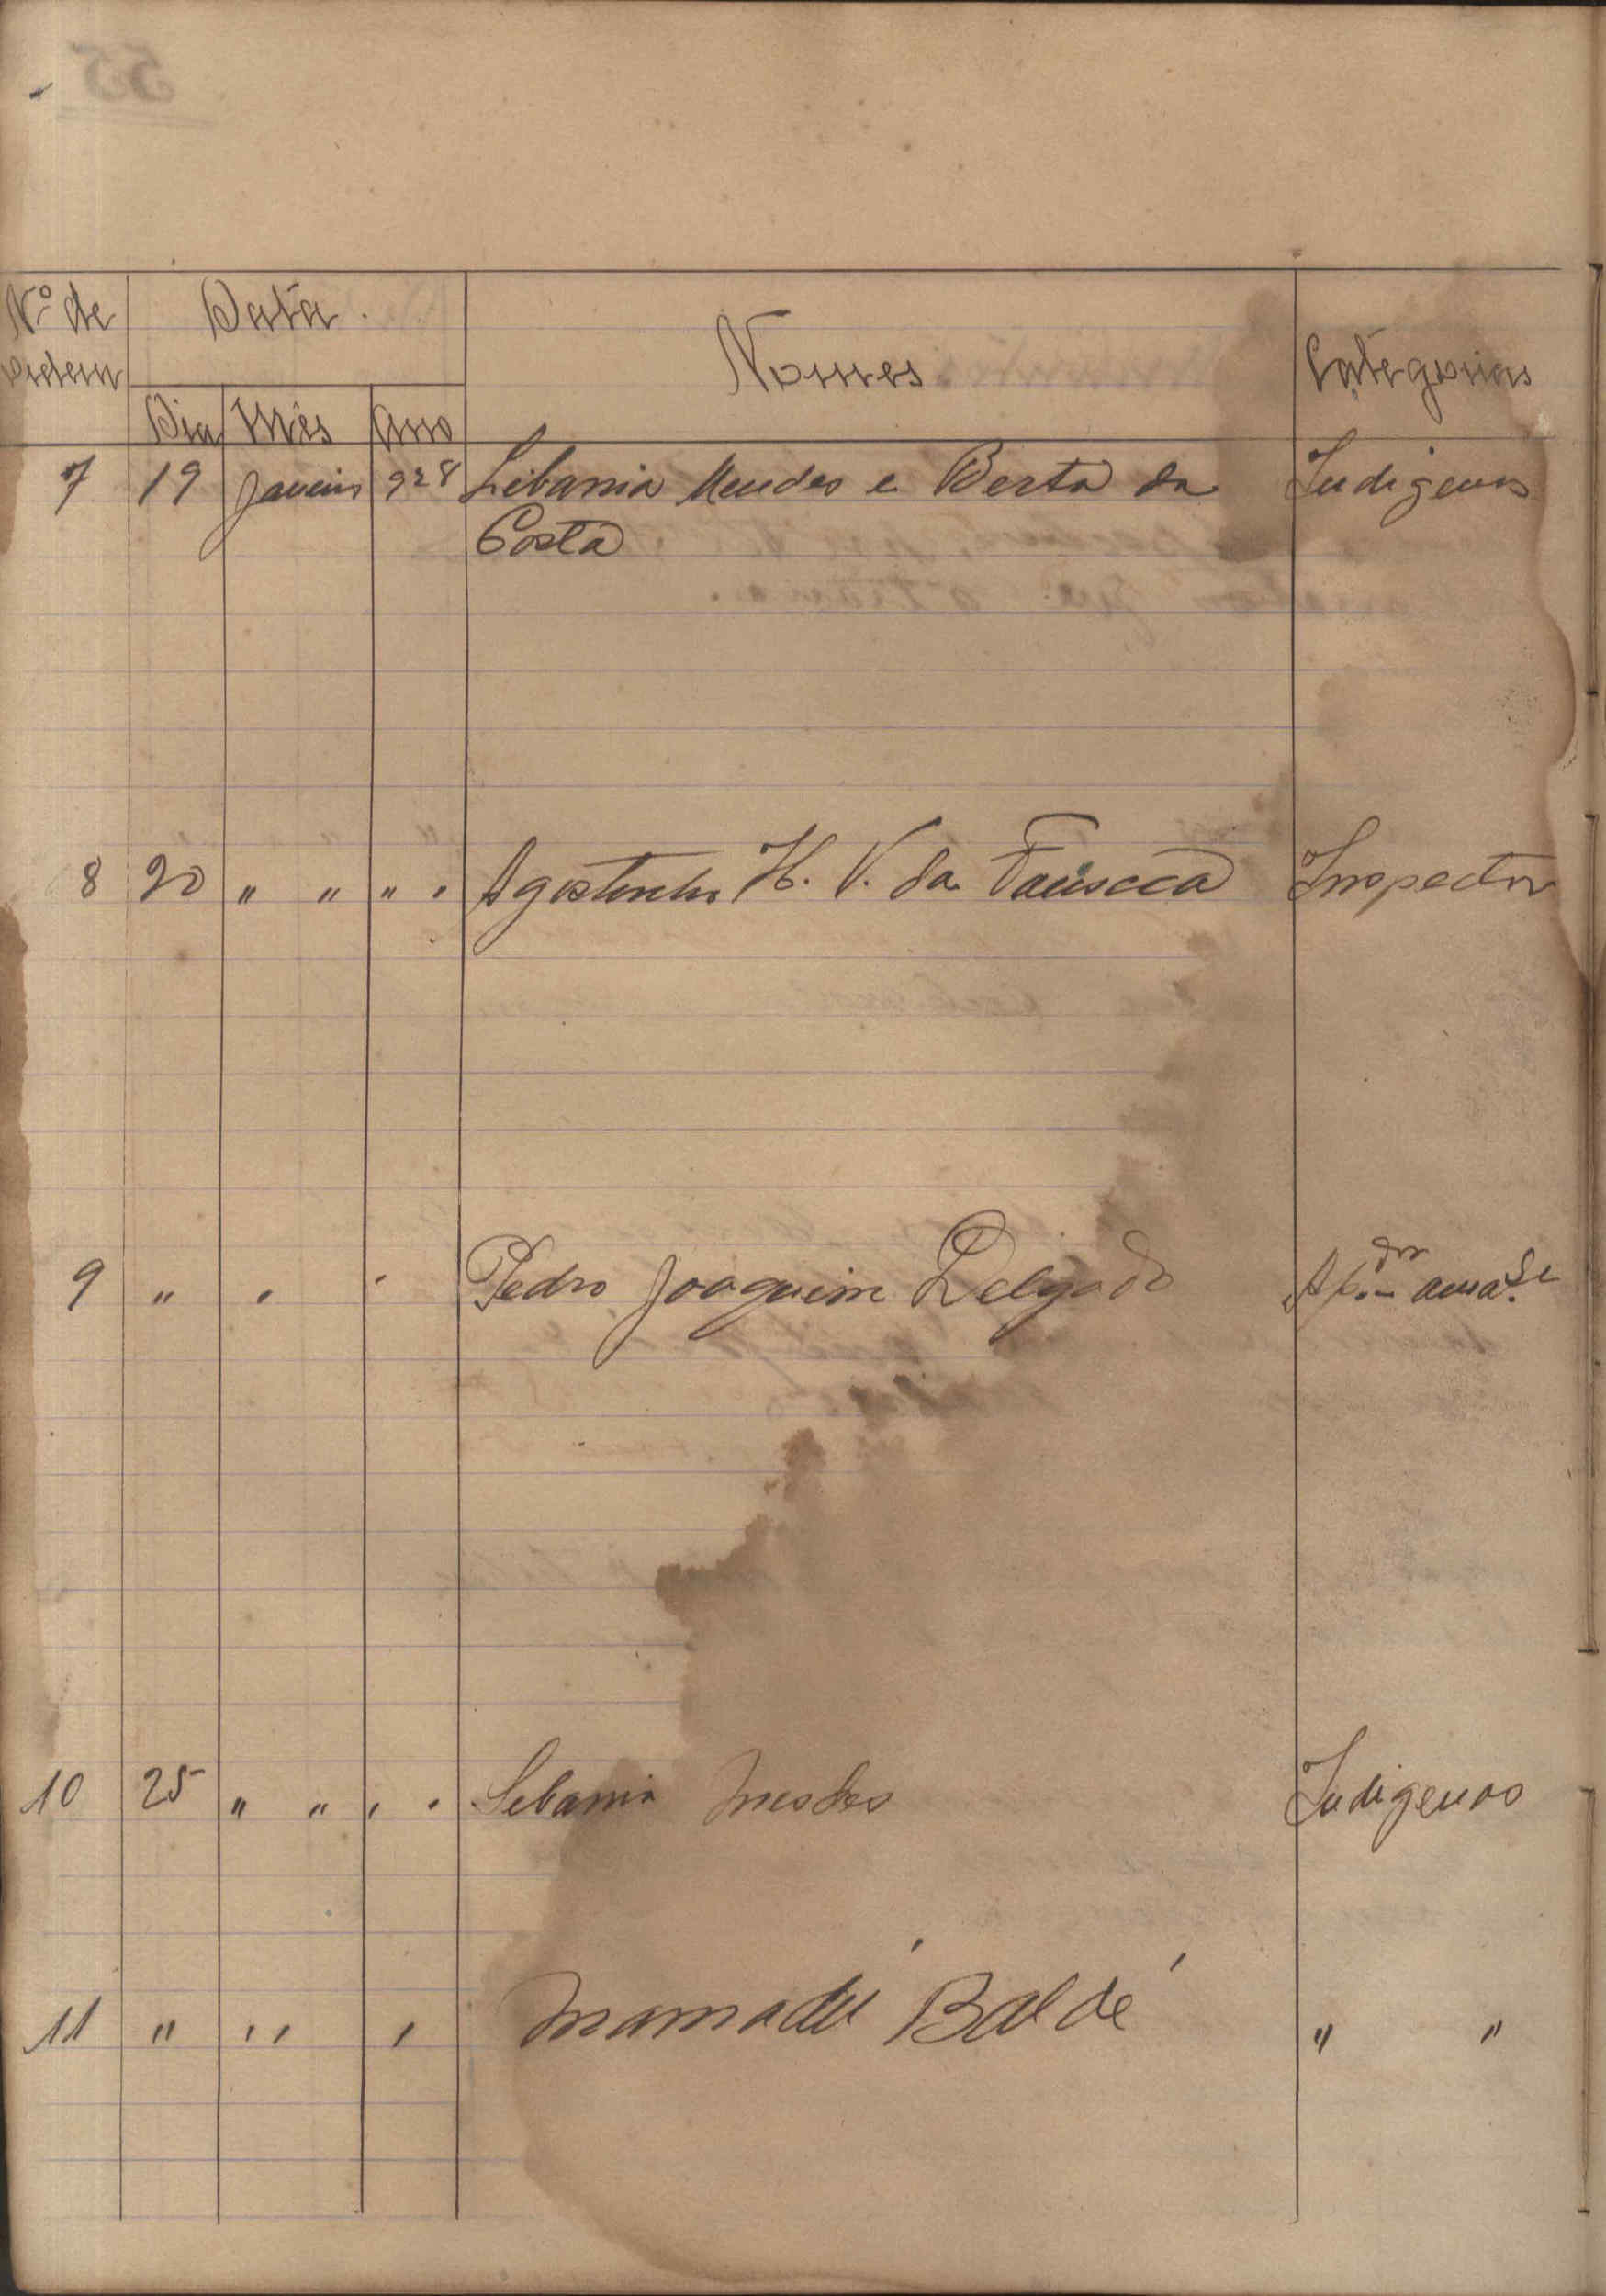 Nº de ordem Data. Nomes Categorias
Dia Mês Ano
7 19 Janeiro 928 Libania Mendes e Berta da Indigenas
Costa
8 20 " " " " Agostinho H. V. da Fonseca Inspector
9 " " " Pedro Joaquim Delgado
10 25 " " " " Libania Mendes Indigenas
11 " " " " Mamadú Baldé " "